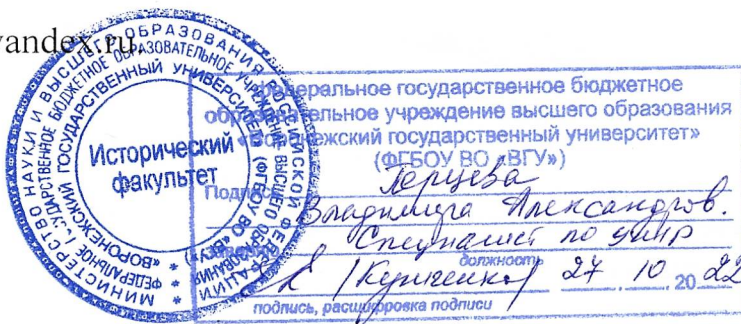 yandex.ru
МИНИСТЕРСТВО НАУКИ И ВЫСШЕГО ОБРАЗОВАНИЯ РОССИЙСКОЙ ФЕДЕРАЦИИ
ФЕДЕРАЛЬНОЕ ГОСУДАРСТВЕННОЕ БЮДЖЕТНОЕ ОБРАЗОВАТЕЛЬНОЕ УЧРЕЖДЕНИЕ ВЫСШЕГО ОБРАЗОВАНИЯ
«ВОРОНЕЖСКИЙ ГОСУДАРСТВЕННЫЙ УНИВЕРСИТЕТ» (ФГБОУ ВО «ВГУ»)
Исторический
факультет
федеральное государственное бюджетное
образовательное учреждение высшего образования
«Воронежский государственный университет»
(ФГБОУ ВО «ВГУ»)
Владимира Александров.
Специалист по
должность
27 . 10 20 22
подпись, расшифровка подписи